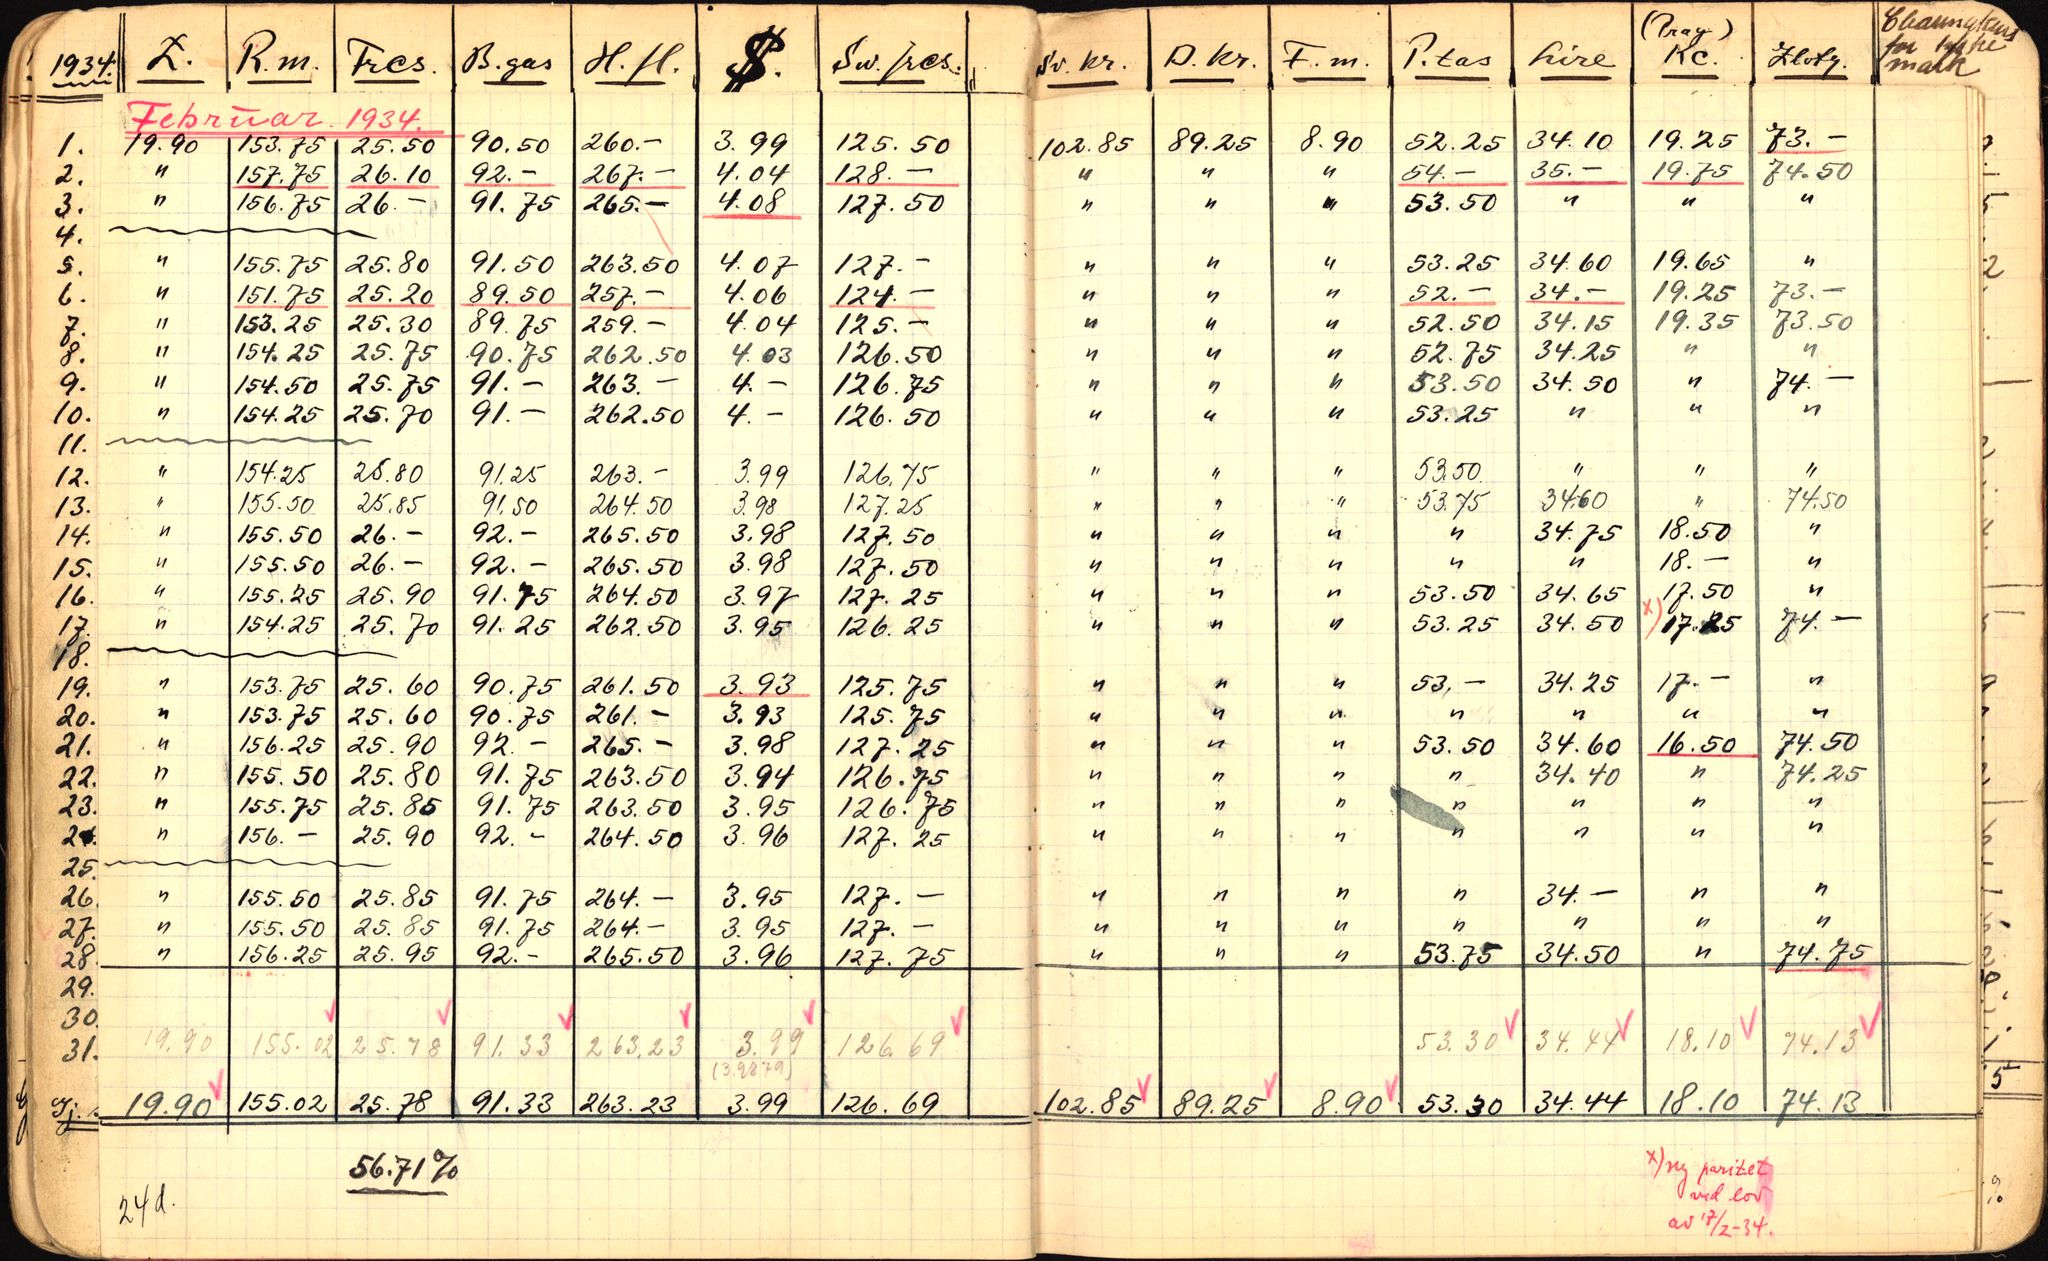 1934. £. R.m. Frcs. B.gas H.fl. $. Sw.frcs. Sv. kr. D. Kr. F.m. P.tas Lire (Prag) Kc. Zloty. for mark
Februar 1934.
1. 19.90 153.75 25.50 90.50 260.- 3.99 125.50 102.85 89.25 8.90 52.25 34.10 19.25 73.-
2. " 157.75 26.10 92.- 267.- 4.04 128.- " " " 54.- 35.- 19.75 74.50
3. " 156.75 26.- 91.75 265.- 4.08 127.50 " " " 53.50 " " "
4.
5. " 155.75 25.80 91.50 263.50 4.07 127.- " " " 53.25 34.60 19.65 "
6. " 151.75 25.20 89.50 257.- 4.06 124.- " " " 52.- 34.- 19.25 73.-
7. " 153.25 25.30 89.75 259.- 4.04 125.- " " " 52.50 34.15 19.35 73.50
8. " 154.25 25.75 90.75 262.50 4.03 126.50 " " " 52.75 34.25 " "
9. " 154.50 25.75 91.- 263.- 4.- 126.75 " " " 53.50 34.50 " 74.-
10. " 154.25 25.70 91.- 262.50 4.- 126.50 " " " 53.25 " " "
11.
12. " 154.25 25.80 91.25 263.- 3.99 126.75 " " " 53.50 " " "
13. " 155.50 25.85 91.50 264.50 3.98 127.25 " " " 53.75 34.60 " 74.50
14. " 155.50 26.- 92.- 265.50 3.98 127.50 " " " " 34.75 18.50 "
15. " 155.50 26.- 92.- 265.50 3.98 127.50 " " " " " 18.- "
16. " 155.25 25.90 91.75 264.50 3.97 127.25 " " " 53.50 34.65 17.50 "
17. " 154.25 25.70 91.25 262.50 3.95 126.25 " " " 53.25 34.50 x) 17.25 74.-
18.
19. " 153.75 25.60 90.75 261.50 3.93 125.75 " " " 53.- 34.25 17.- "
20. " 153.75 25.60 90.75 261.- 3.93 125.75 " " " " " " "
21. " 156.25 25.90 92.- 265.- 3.98 127.25 " " " 53.50 34.60 16.50 74.50
22. " 155.50 25.80 91.75 263.50 3.94 126.75 " " " " 34.40 " 74.25
23. " 155.75 25.85 91.75 263.50 3.95 126.75 " " " " " " "
24. " 156.- 25.90 92.- 264.50 3.96 127.25 " " " " " " "
25.
26. " 155.50 25.85 91.75 264.- 3.95 127.- " " " " 34.- " "
27. " 155.50 25.85 91.75 264.- 3.95 127.- " " " " " " "
28. " 156.25 25.95 92.- 265.50 3.96 127.75 " " " 53.75 34.50 " 74.75
29.
30.
31. 19.90 155.02 25.78 91.33 263.23 3.99 126.69 53.30 34.44 18.10 74.13
(3.9879)
Gj. 19.90 155.02 25.78 91.33 263.23 3.99 126.69 102.85 89.25 8.90 53.30 34.44 18.10 74.13
56.71%
24 d.
x) ny paritet
ved lov
av 17/2-34.